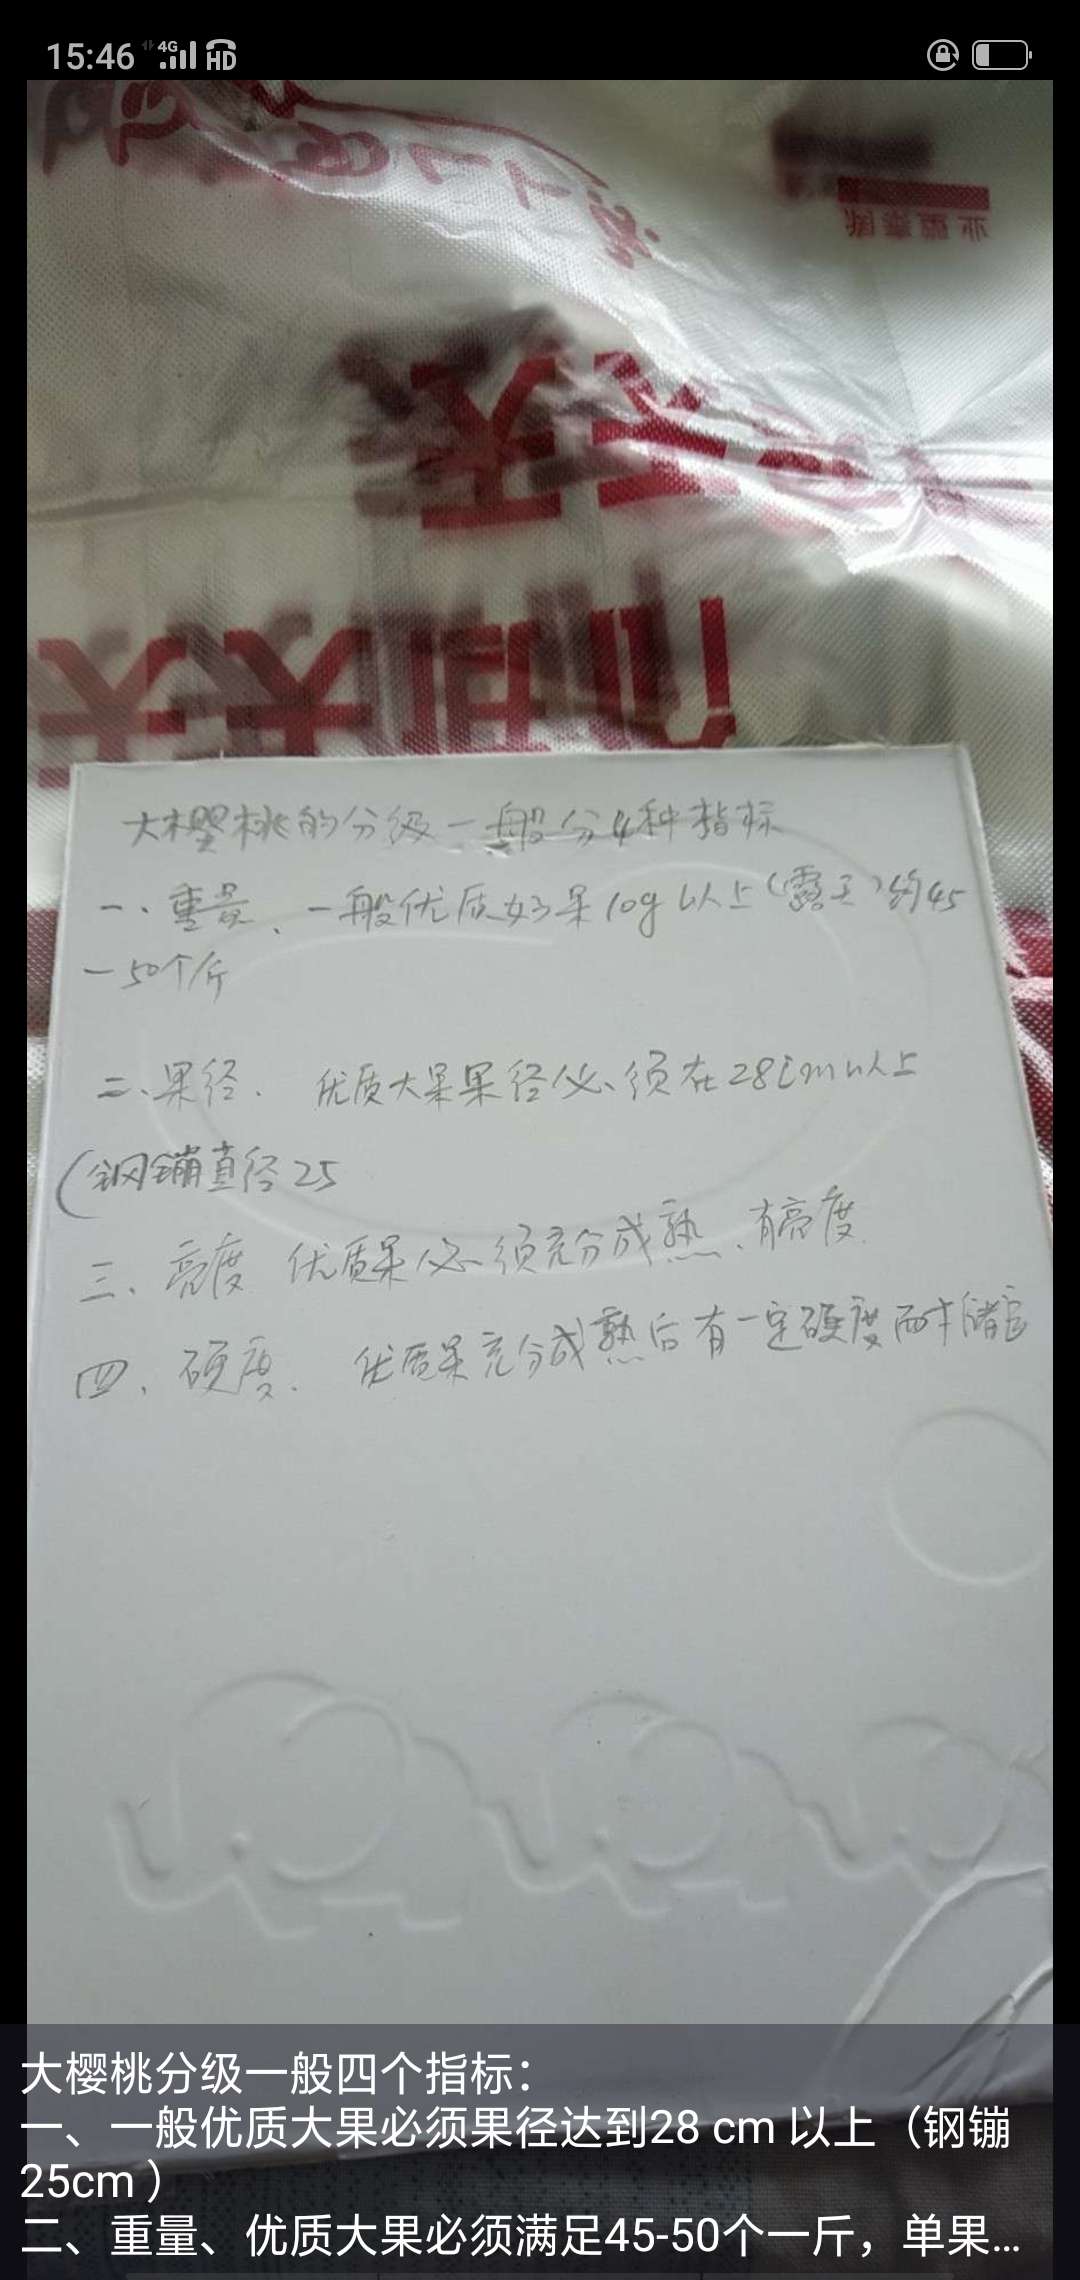 15:46 4G HD
大樱桃的分级一般分4种指标
一、重量、一般优质好果10g以上(露天)约45
-50个/斤
二、果径. 优质大果果径必须在28cm以上
(钢镚直径25
三、亮度 优质果必须充分成熟、有亮度.
四、硬度. 优质果充分成熟后有一定硬度而耐储运
大樱桃分级一般四个指标：
一、一般优质大果必须果径达到28 cm 以上（钢镚
25cm ）
二、重量、优质大果必须满足45-50个一斤，单果...